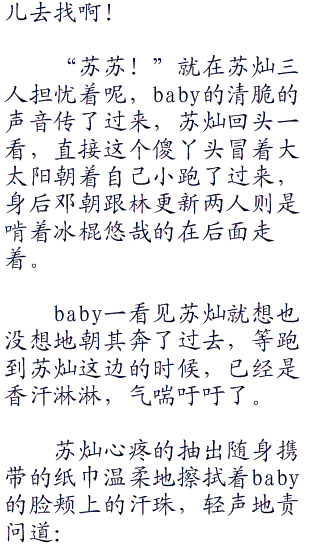 儿去找啊！
“苏苏！”就在苏灿三
人担忧着呢，baby的清脆的
声音传了过来，苏灿回头一
看，直接这个傻丫头冒着大
太阳朝着自己小跑了过来，
身后邓朝跟林更新两人则是
啃着冰棍悠哉的在后面走
着。
baby一看见苏灿就想也
没想地朝其奔了过去，等跑
到苏灿这边的时候，已经是
香汗淋淋，气喘吁吁了。
苏灿心疼的抽出随身携
带的纸巾温柔地擦拭着baby
的脸颊上的汗珠，轻声地责
问道：